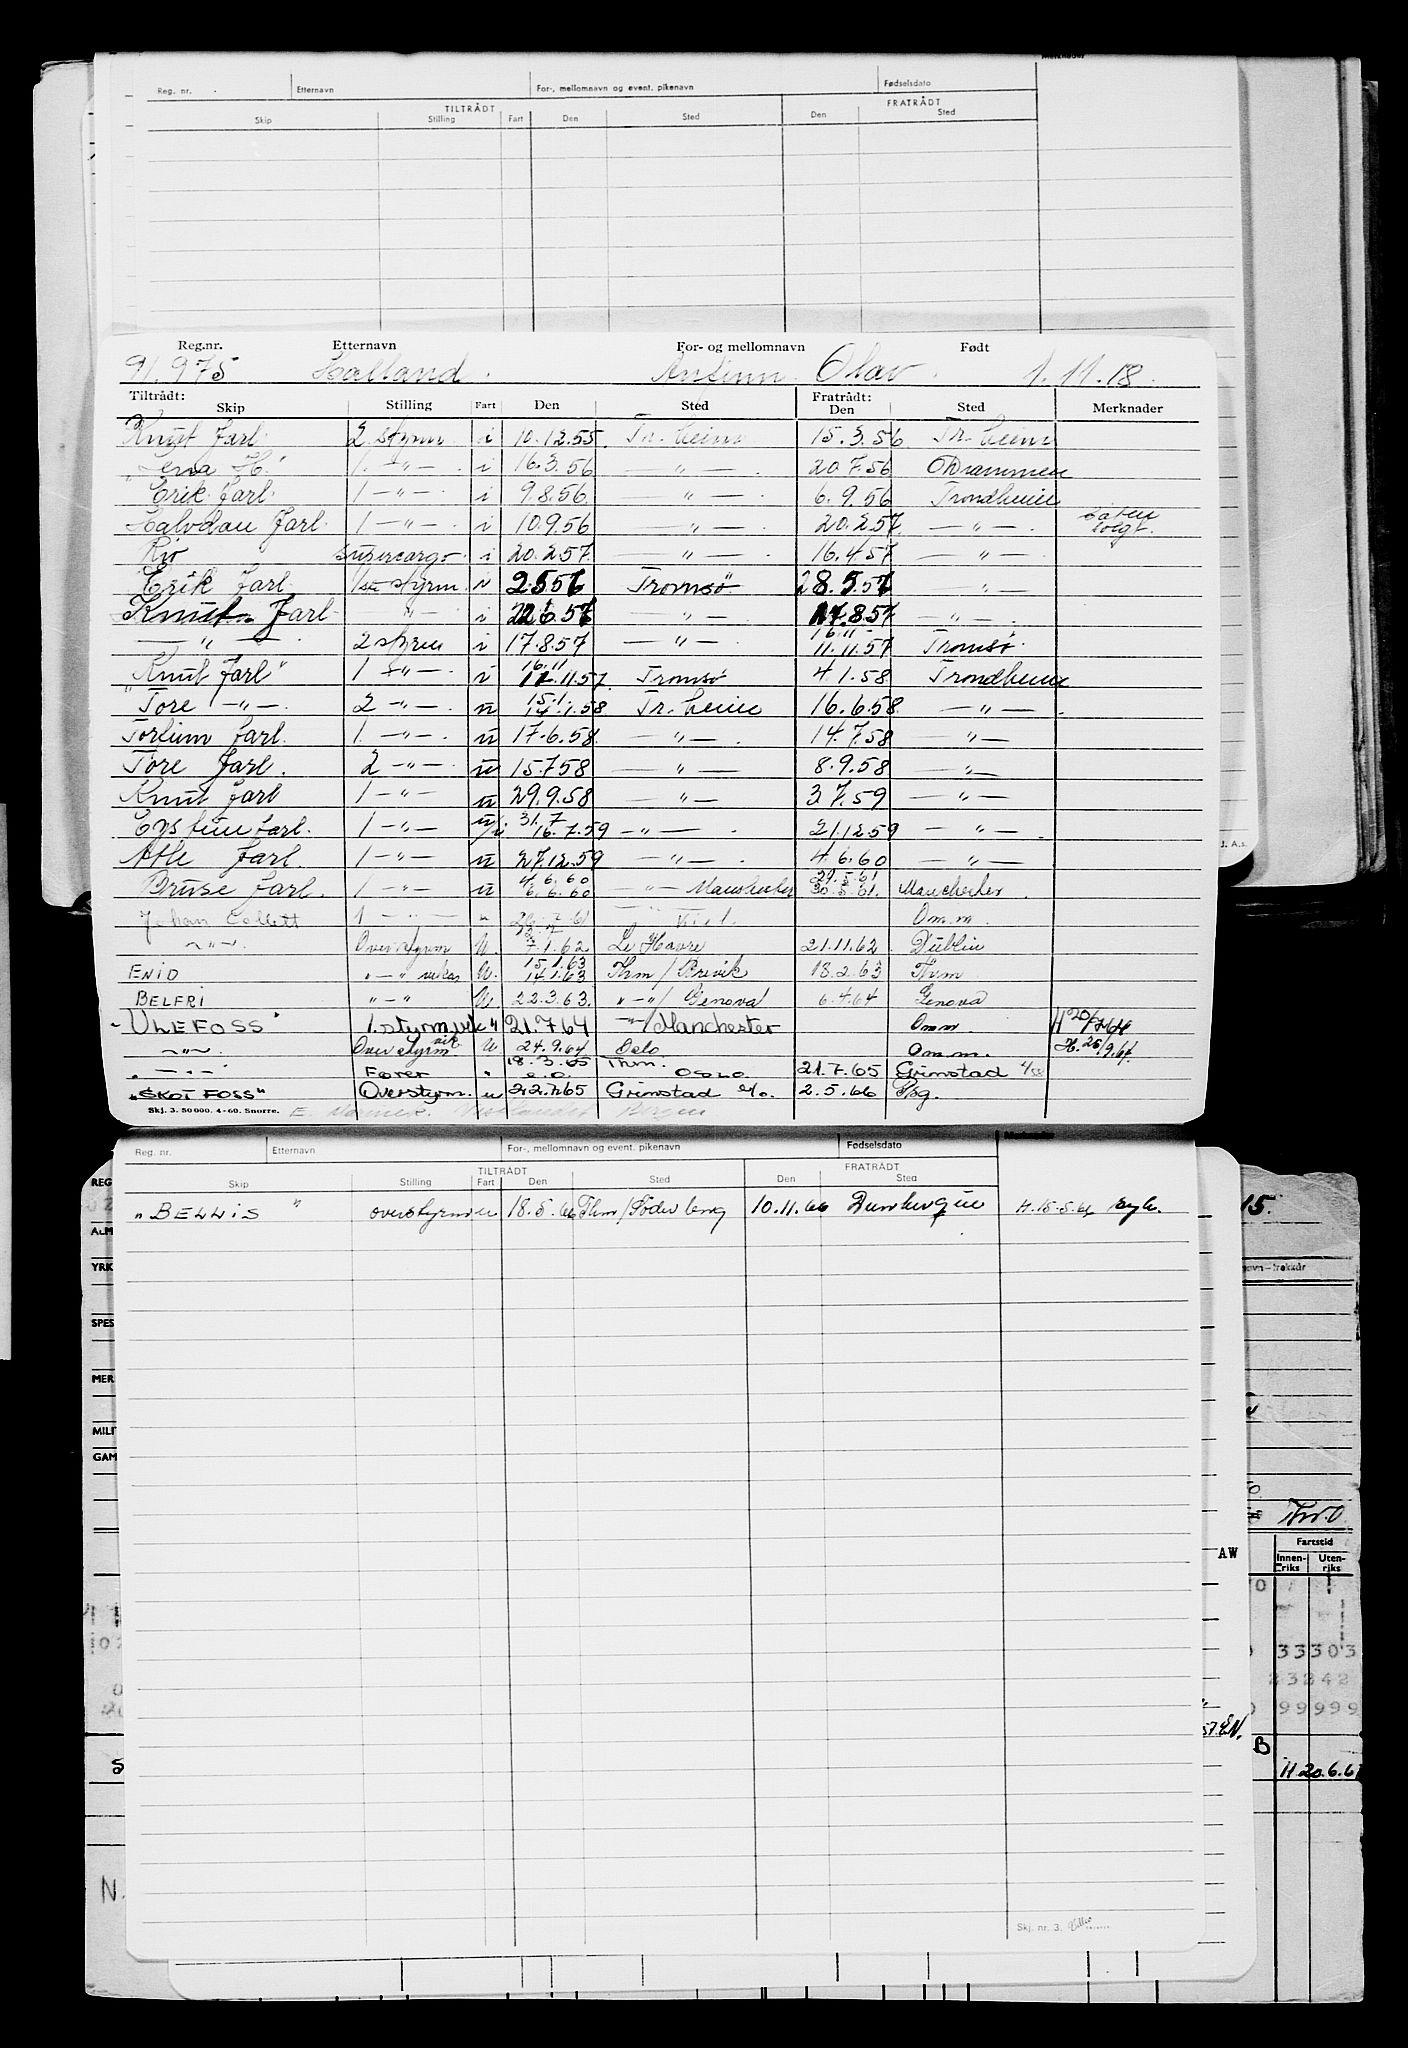 Merknader
Reg. nr. Etternavn For-, mellomnavn og event. pikenavn Fødselsdato
TILTRÅDT FRATRÅDT
Skip Stilling Fart Den Sted Den Sted
Reg.nr. Etternavn For- og mellomnavn Født
91.975 Holland. Olav. 1.11.18.
Tiltrådt: Fratrådt:
Skip Stilling Fart Den Sted Den Sted Merknader
Knut Jarl 2. styrm. i 10.12.55. Tr.heim 15.3.56 Tr.heim
"Lena H." 1. —"— . i 16.3.56 —"— . 20.7.56 Drammen
Erik Jarl. 1 —"— . i 9.8.56. —"— . 6.9.56 Trondheim
Halvdan Jarl. 1 —"— . i 10.9.56 —"— 20.2.57. —"— . solgt.
Rio supercargo. i 20.2.57. —"— 16.4.57 —"—
Erik Jarl. 1ste styrm. i 2.5.57 Tromsø 28.5.57 "
Knut Jarl. —"— . i 22.6.57 —"— 17.8.57 —"— .
—"— . 2 styrm i 17.8.57 —"— 16.11 11.11.57 Tromsø.
"Knut Jarl" 1 —"— . i 16.11 12.11.57. Tromsø 4.1.58 Trondheim
"Tore —"— . 2 —"— . u 15.1. 14.1.58 Tr.heim 16.6.58. —"— .
Jarl. 1. —"— . u 17.6.58. —"— . 14.7.58 —"—
Tore Jarl. 2 —"— . u 15.7.58 —"— 8.9.58 —"—
Knut Jarl 1 —"— u 29.9.58 —"— 3.7.59 —"—
Eystein Jarl. 1 —"— . u/i 31.7 16.7.59 —"— . 21.12.59 —"— .
Atle Jarl. 1 —"— u 27.12.59 —"— . 4.6.60 —"—
Bruse Jarl. 1 —"— u 4.6.60 6.6.60 —"— Manchester 29.5.61 30.5.61. Manchester
Johan Collett 1 —"— " 26.7.61 Om.m.
—"— . Overstyrm U. 7.1.62 Le Havre 21.11.62. Dublin
ENID "—" vikar U. 15.1.63 14.1.63 Thm/Brevik 18.2.63 Thm
BELFRI "—" U 22.3.63. "—"/Genova 6.4.64 Genova
"ULEFOSS" 1.styrm.vik " 21.7.64 —"/Manchester Omm H 20/7.64
—"— . Overstyrm vik. U 24.9.64 Oslo Om.m. H. 26/9.64.
" —"— . Fører " 18.3.65 e.o. Thm. OSLO. 21.7.65 Grimstad
"SKOTFOSS" Overstyrm. u 22.7.65 Grimstad e/o. 2.5.66 Pbg.
Skj. 3. 50 000. 4-60. Snorre.
Merknader
Reg. nr. Etternavn For-, mellomnavn og event. pikenavn Fødselsdato
TILTRÅDT FRATRÅDT
Skip Stilling Fart Den Sted Den Sted
"BELLIS " overstyrm u 18.5.66 Thm/Söderteng 10.11.66 Dunkerque H.15.5.66
Skj. nr. 3.
REG
ALM
YRK
SPES
MER
MILI
GAM
15.
Tr.O.
Fartstid
Innenriks Utenriks
AW
33303
23242
99999
57.EN.
B
H.20.6.6
N.
J. A.s.